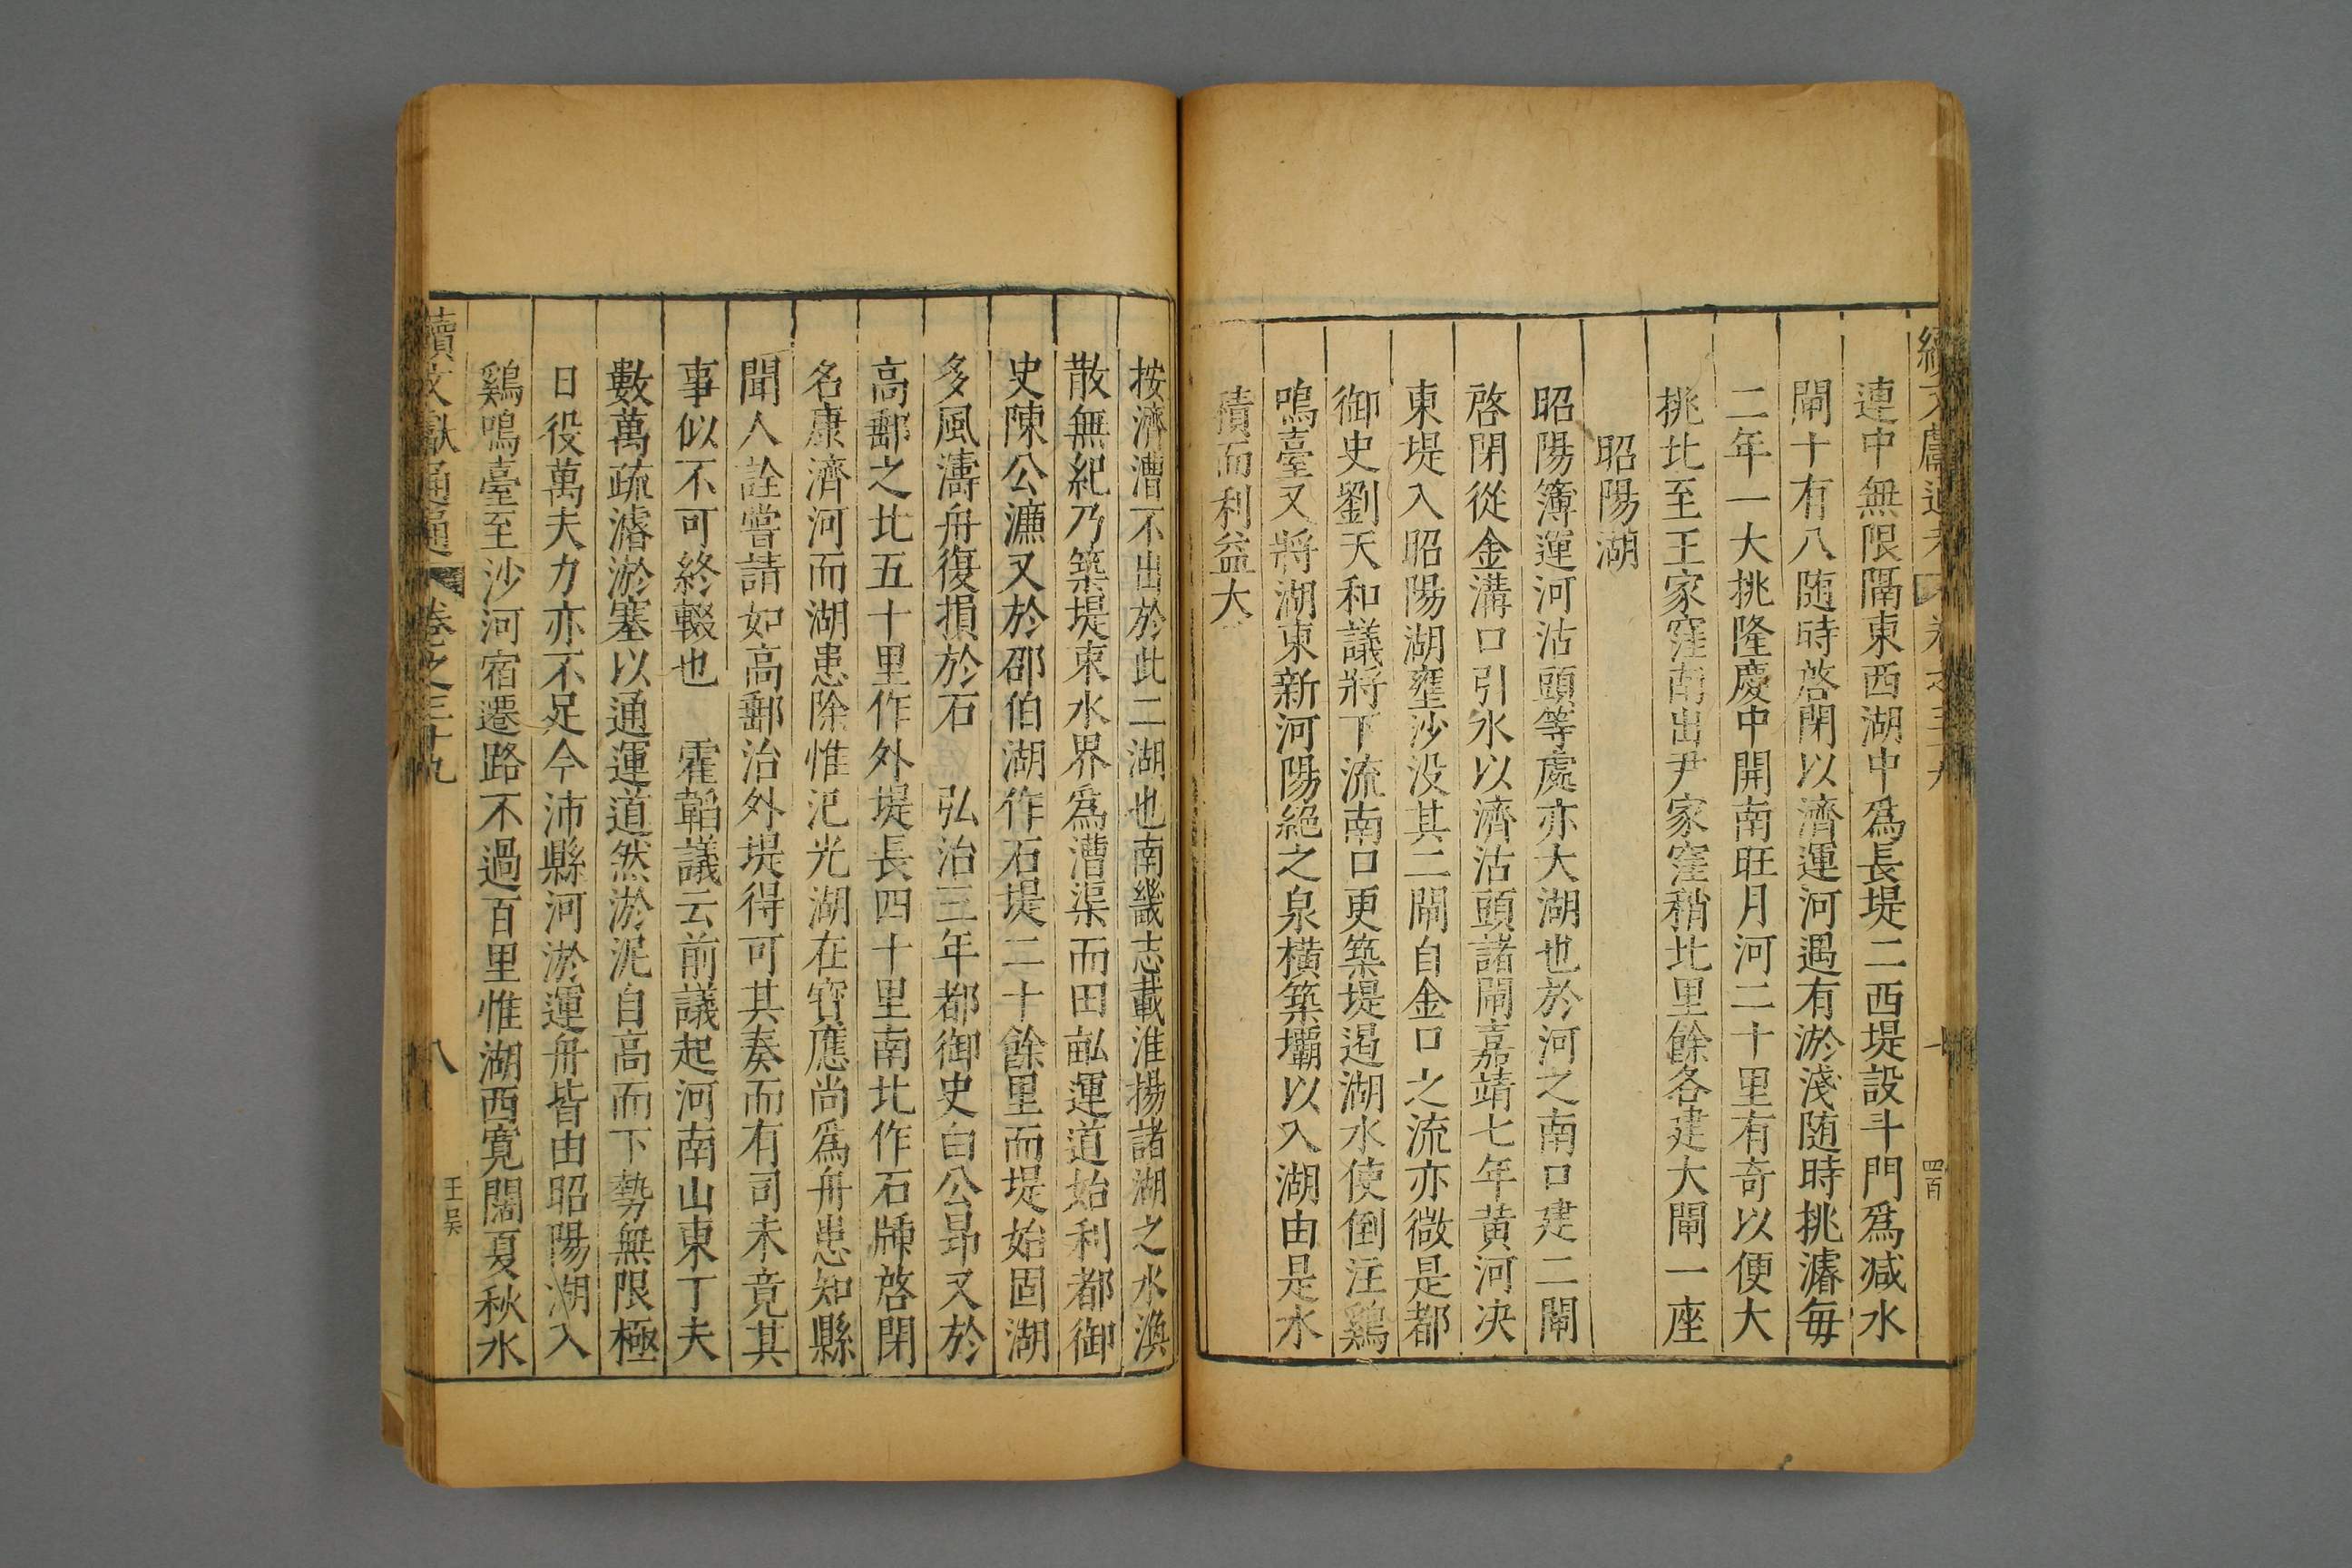 連中無限隔東西湖中爲長堤二西堤設斗門爲减水
閘十有八随時啓閉以濟運河遇有淤淺随時挑濬每
二年一大挑隆慶中開南旺月河二十里有奇以便大
挑北至王家窪南出尹家窪稍北里餘各建大閘一座
昭陽湖
昭陽簿運河沽頭等處亦大湖也於河之南口建二閘
啓閉從金溝口引水以濟沽頭諸閘嘉靖七年黄河决
東堤入昭陽湖壅沙没其二閘自金口之流亦微是都
御史劉天和議將下流南口更築堤遏湖水使倒注鷄
鳴臺又將湖東新河陽絶之泉橫築壩以入湖由是水
積而利益大
按濟漕不出於此二湖也南畿志載淮揚諸湖之水渙
散無紀乃築堤束水界爲漕渠而田畆運道始利都御
史陳公濂又於邵伯湖作石堤二十餘里而堤始固湖
多風濤舟復損於石 弘治三年都御史白公昂又於
高郵之北五十里作外堤長四十里南北作石牐啓閉
名康濟河而湖患除惟汜光湖在寳應尚爲舟患知縣
聞人詮嘗請如高郵治外堤得可其奏而有司未竟其
事似不可終輟也 霍韜議云前議起河南山東丁夫
數萬疏濬淤塞以通運道然淤泥自高而下勢無限極
日役萬夫力亦不足今沛縣河淤運舟皆由昭陽湖入
鷄鳴臺至沙河宿遷路不過百里惟湖西寛闊夏秋水
續文獻通 卷之三十九
八
王吴